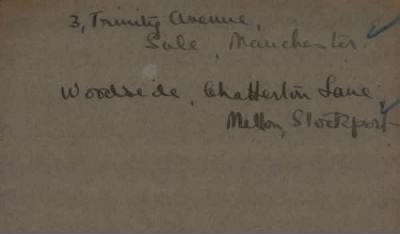 3, Trinity Avenue,
Sale, Manchester.
Woodside, Chatterton Lane,
Mellor, Stockport